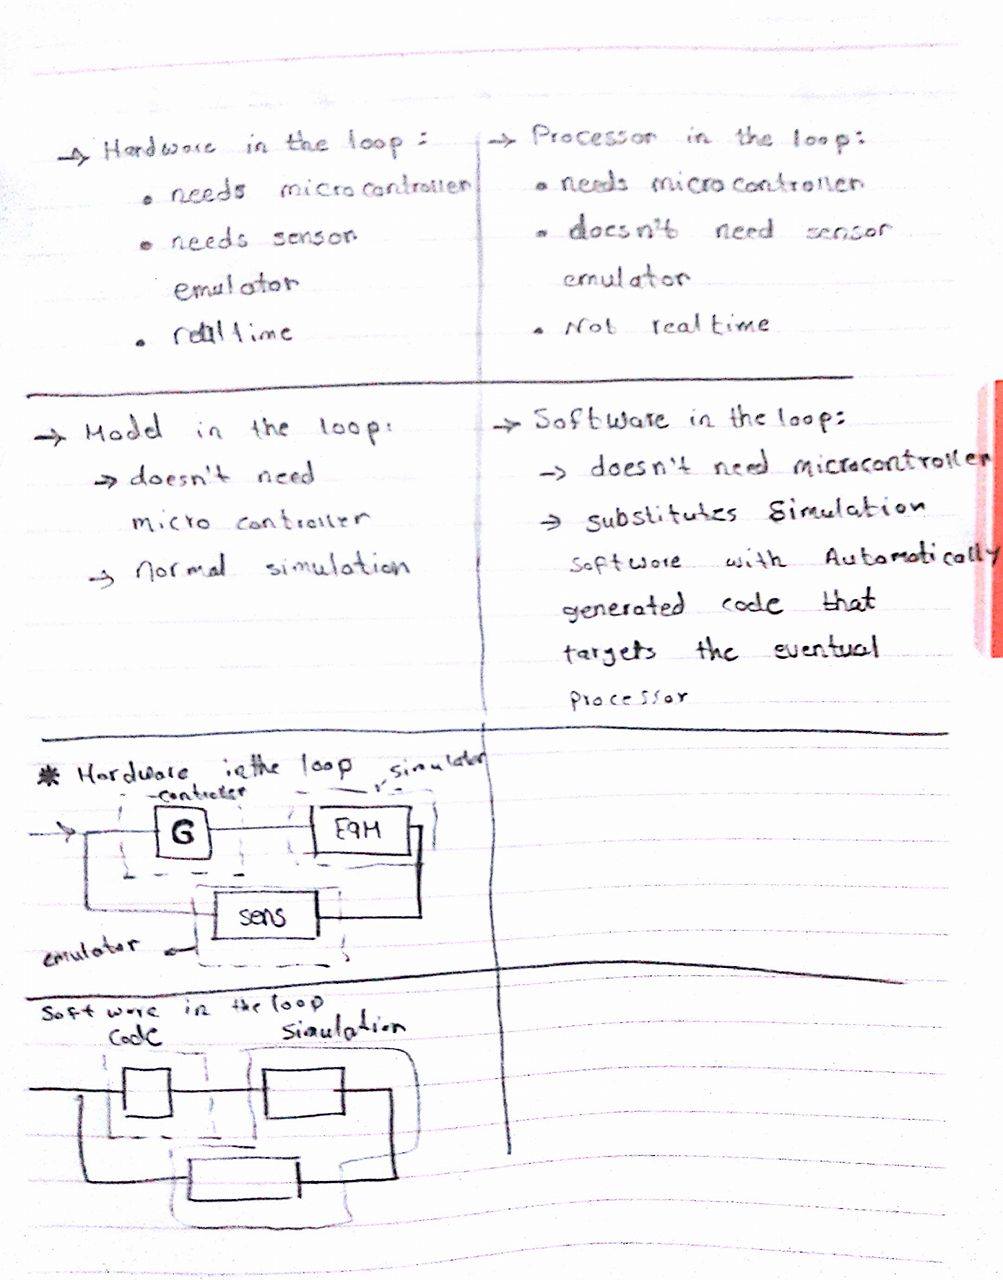 → Hardware in the loop:
• needs microcontroller
• needs sensor
emulator
• realtime
→ Processor in the loop:
• needs microcontroller
• doesn't need sensor
emulator
• Not realtime
→ Model in the loop:
→ doesn't need
micro controller
→ normal simulation
→ Software in the loop:
→ doesn't need microcontroller
→ substitutes Simulation
software with Automatically
generated code that
targets the eventual
Processor
* Hardware in the loop
simulator
controller
G
EQM
sens
emulator
Software in the loop
Code
Simulation